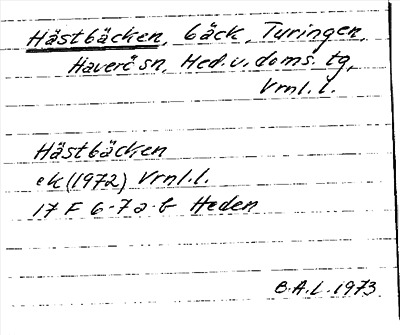 Hästbäcken, bäck, Turingen,
Haverö sn, Hed.v. doms. tg,
Vrnl.l.
Hästbäcken
ek (1972) Vrnl.l.
17 F 6-7 a-b Heden
B.A.L. 1973